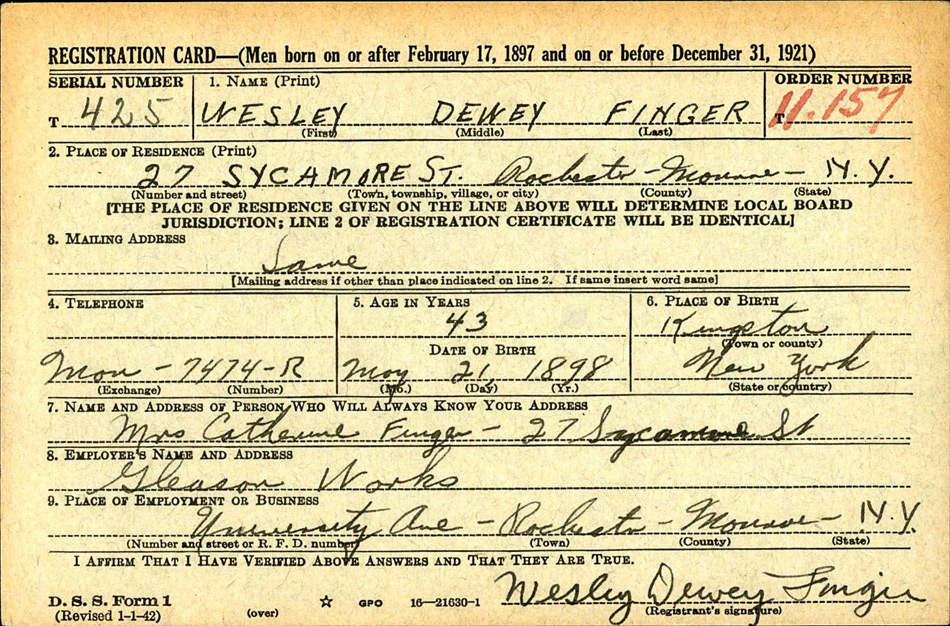 REGISTRATION CARD—(Men born on or after February 17, 1897 and on or before December 31, 1921)
SERIAL NUMBER 1. NAME (Print) ORDER NUMBER
T 425 WESLEY DEWEY FINGER T 11.157
(First) (Middle) (Last)
2. PLACE OF RESIDENCE (Print)
27 SYCAMORE ST. Rochester - Monroe - N.Y.
(Number and street) (Town, township, village, or city) (County) (State)
[THE PLACE OF RESIDENCE GIVEN ON THE LINE ABOVE WILL DETERMINE LOCAL BOARD
JURISDICTION; LINE 2 OF REGISTRATION CERTIFICATE WILL BE IDENTICAL]
3. MAILING ADDRESS
Same
[Mailing address if other than place indicated on line 2. If same insert word same]
4. TELEPHONE 5. AGE IN YEARS 6. PLACE OF BIRTH
43 Kingston
(Town or county)
DATE OF BIRTH
Mon - 7474-R May 21, 1898 New York
(Exchange) (Number) (Mo.) (Day) (Yr.) (State or country)
7. NAME AND ADDRESS OF PERSON WHO WILL ALWAYS KNOW YOUR ADDRESS
Mrs Catherine Finger - 27 Sycamore St
8. EMPLOYER'S NAME AND ADDRESS
Gleason Works
9. PLACE OF EMPLOYMENT OR BUSINESS
University Ave - Rochester - Monroe - N.Y.
(Number and street or R. F. D. number) (Town) (County) (State)
I AFFIRM THAT I HAVE VERIFIED ABOVE ANSWERS AND THAT THEY ARE TRUE.
Wesley Dewey Finger
D. S. S. Form 1
(Revised 1-1-42) (over) ☆ GPO 16—21630-1 (Registrant's signature)